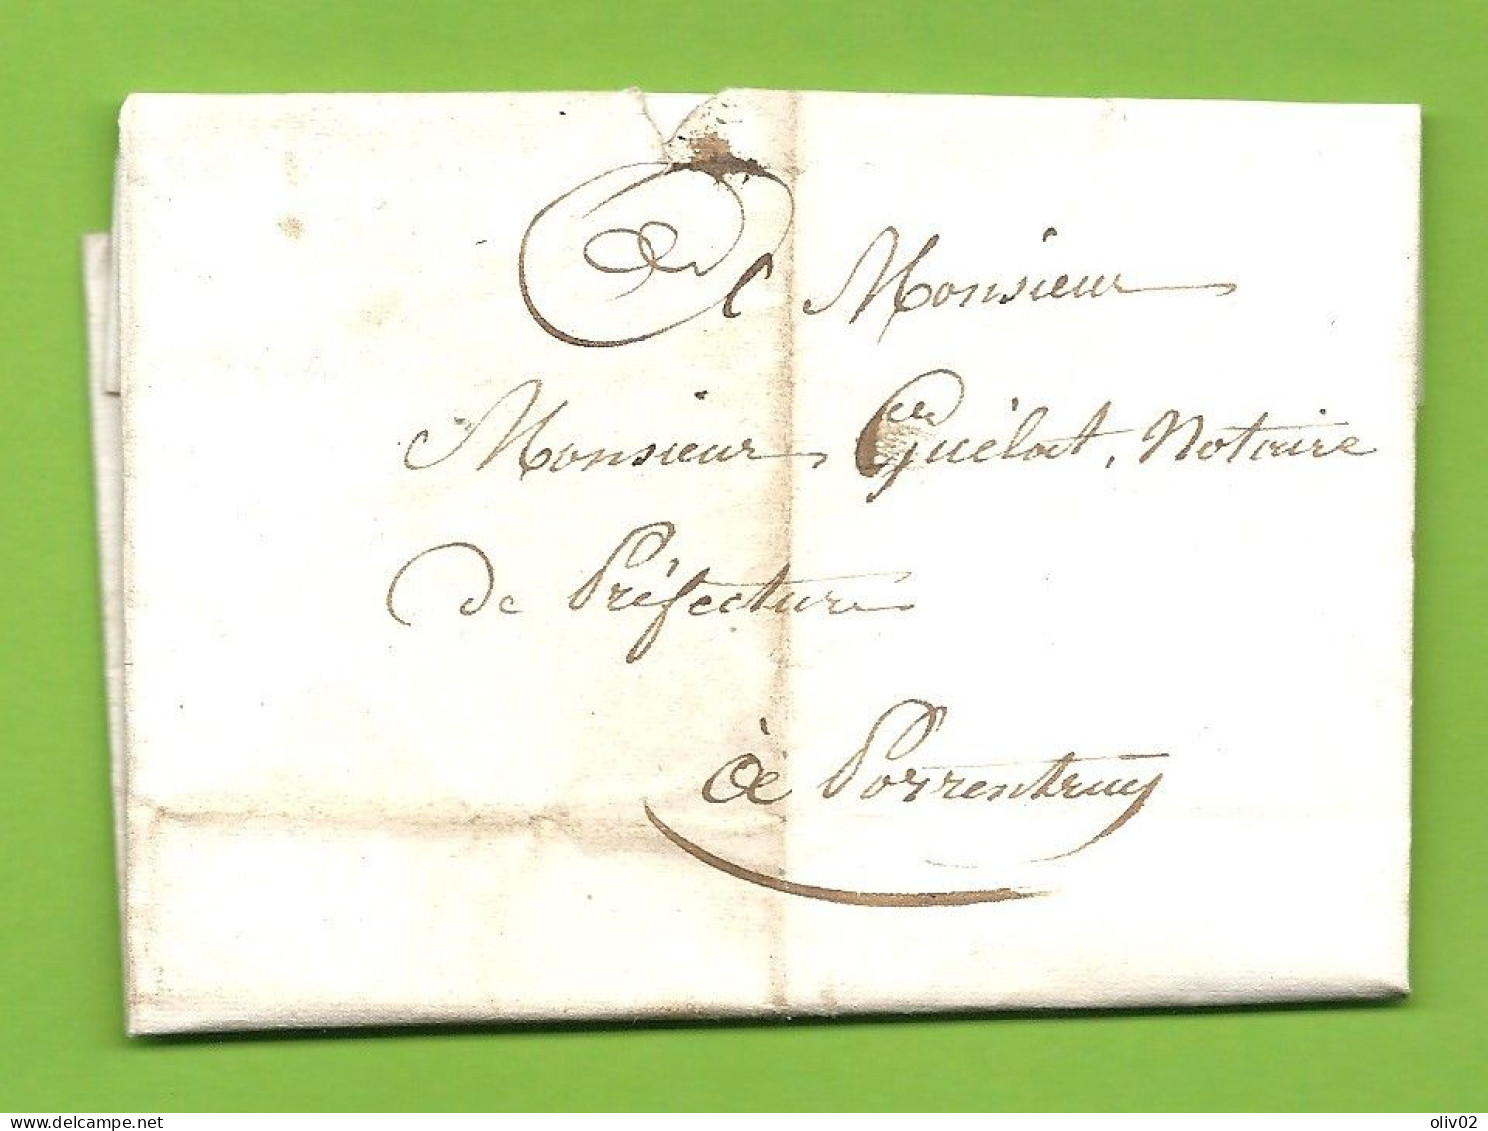 A Monsieur
Monsieur Guélat, Notaire
de Préfecture
à Porrentruy
delcampe.net
oliv02